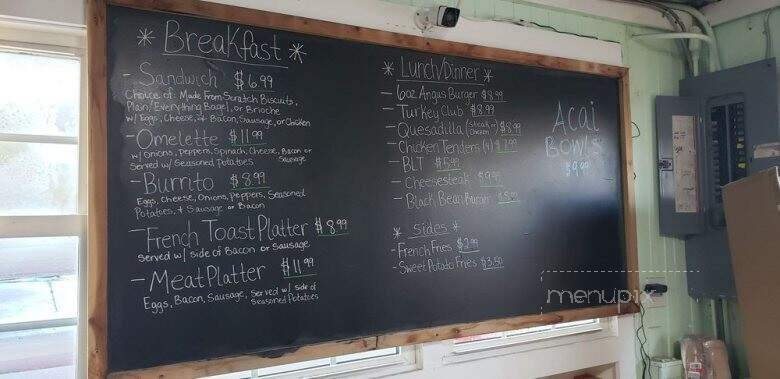 * Breakfast *
- Sandwich $6.99
Choice of Made From Scratch Biscuits,
Plain, Everything Bagel, or Brioche
w/ Eggs, Cheese, + Bacon, Sausage, or Chicken
- Omelette $11.99
w/ Onions, Peppers, Spinach, Cheese, Bacon or Sausage
Served w/ Seasoned Potatoes
- Burrito $8.99
Eggs, Cheese, Onions, Peppers, Seasoned
Potatoes, + Sausage or Bacon
- French Toast Platter $8.99
Served w/ Side of Bacon or Sausage
- Meat Platter $11.99
Eggs, Bacon, Sausage, Served w/ side of
Seasoned Potatoes
* Lunch/Dinner *
- 6oz Angus Burger $8.99
- Turkey Club $8.99
- Quesadilla (Steak or Chicken) $8.99
- Chicken Tenders (4) $7.99
- BLT $5.99
- Cheesesteak $9.99
- Black Bean Burger
* Sides *
- French Fries $2.99
- Sweet Potato Fries $3.50
Acai
Bowls
$9.99
menupix